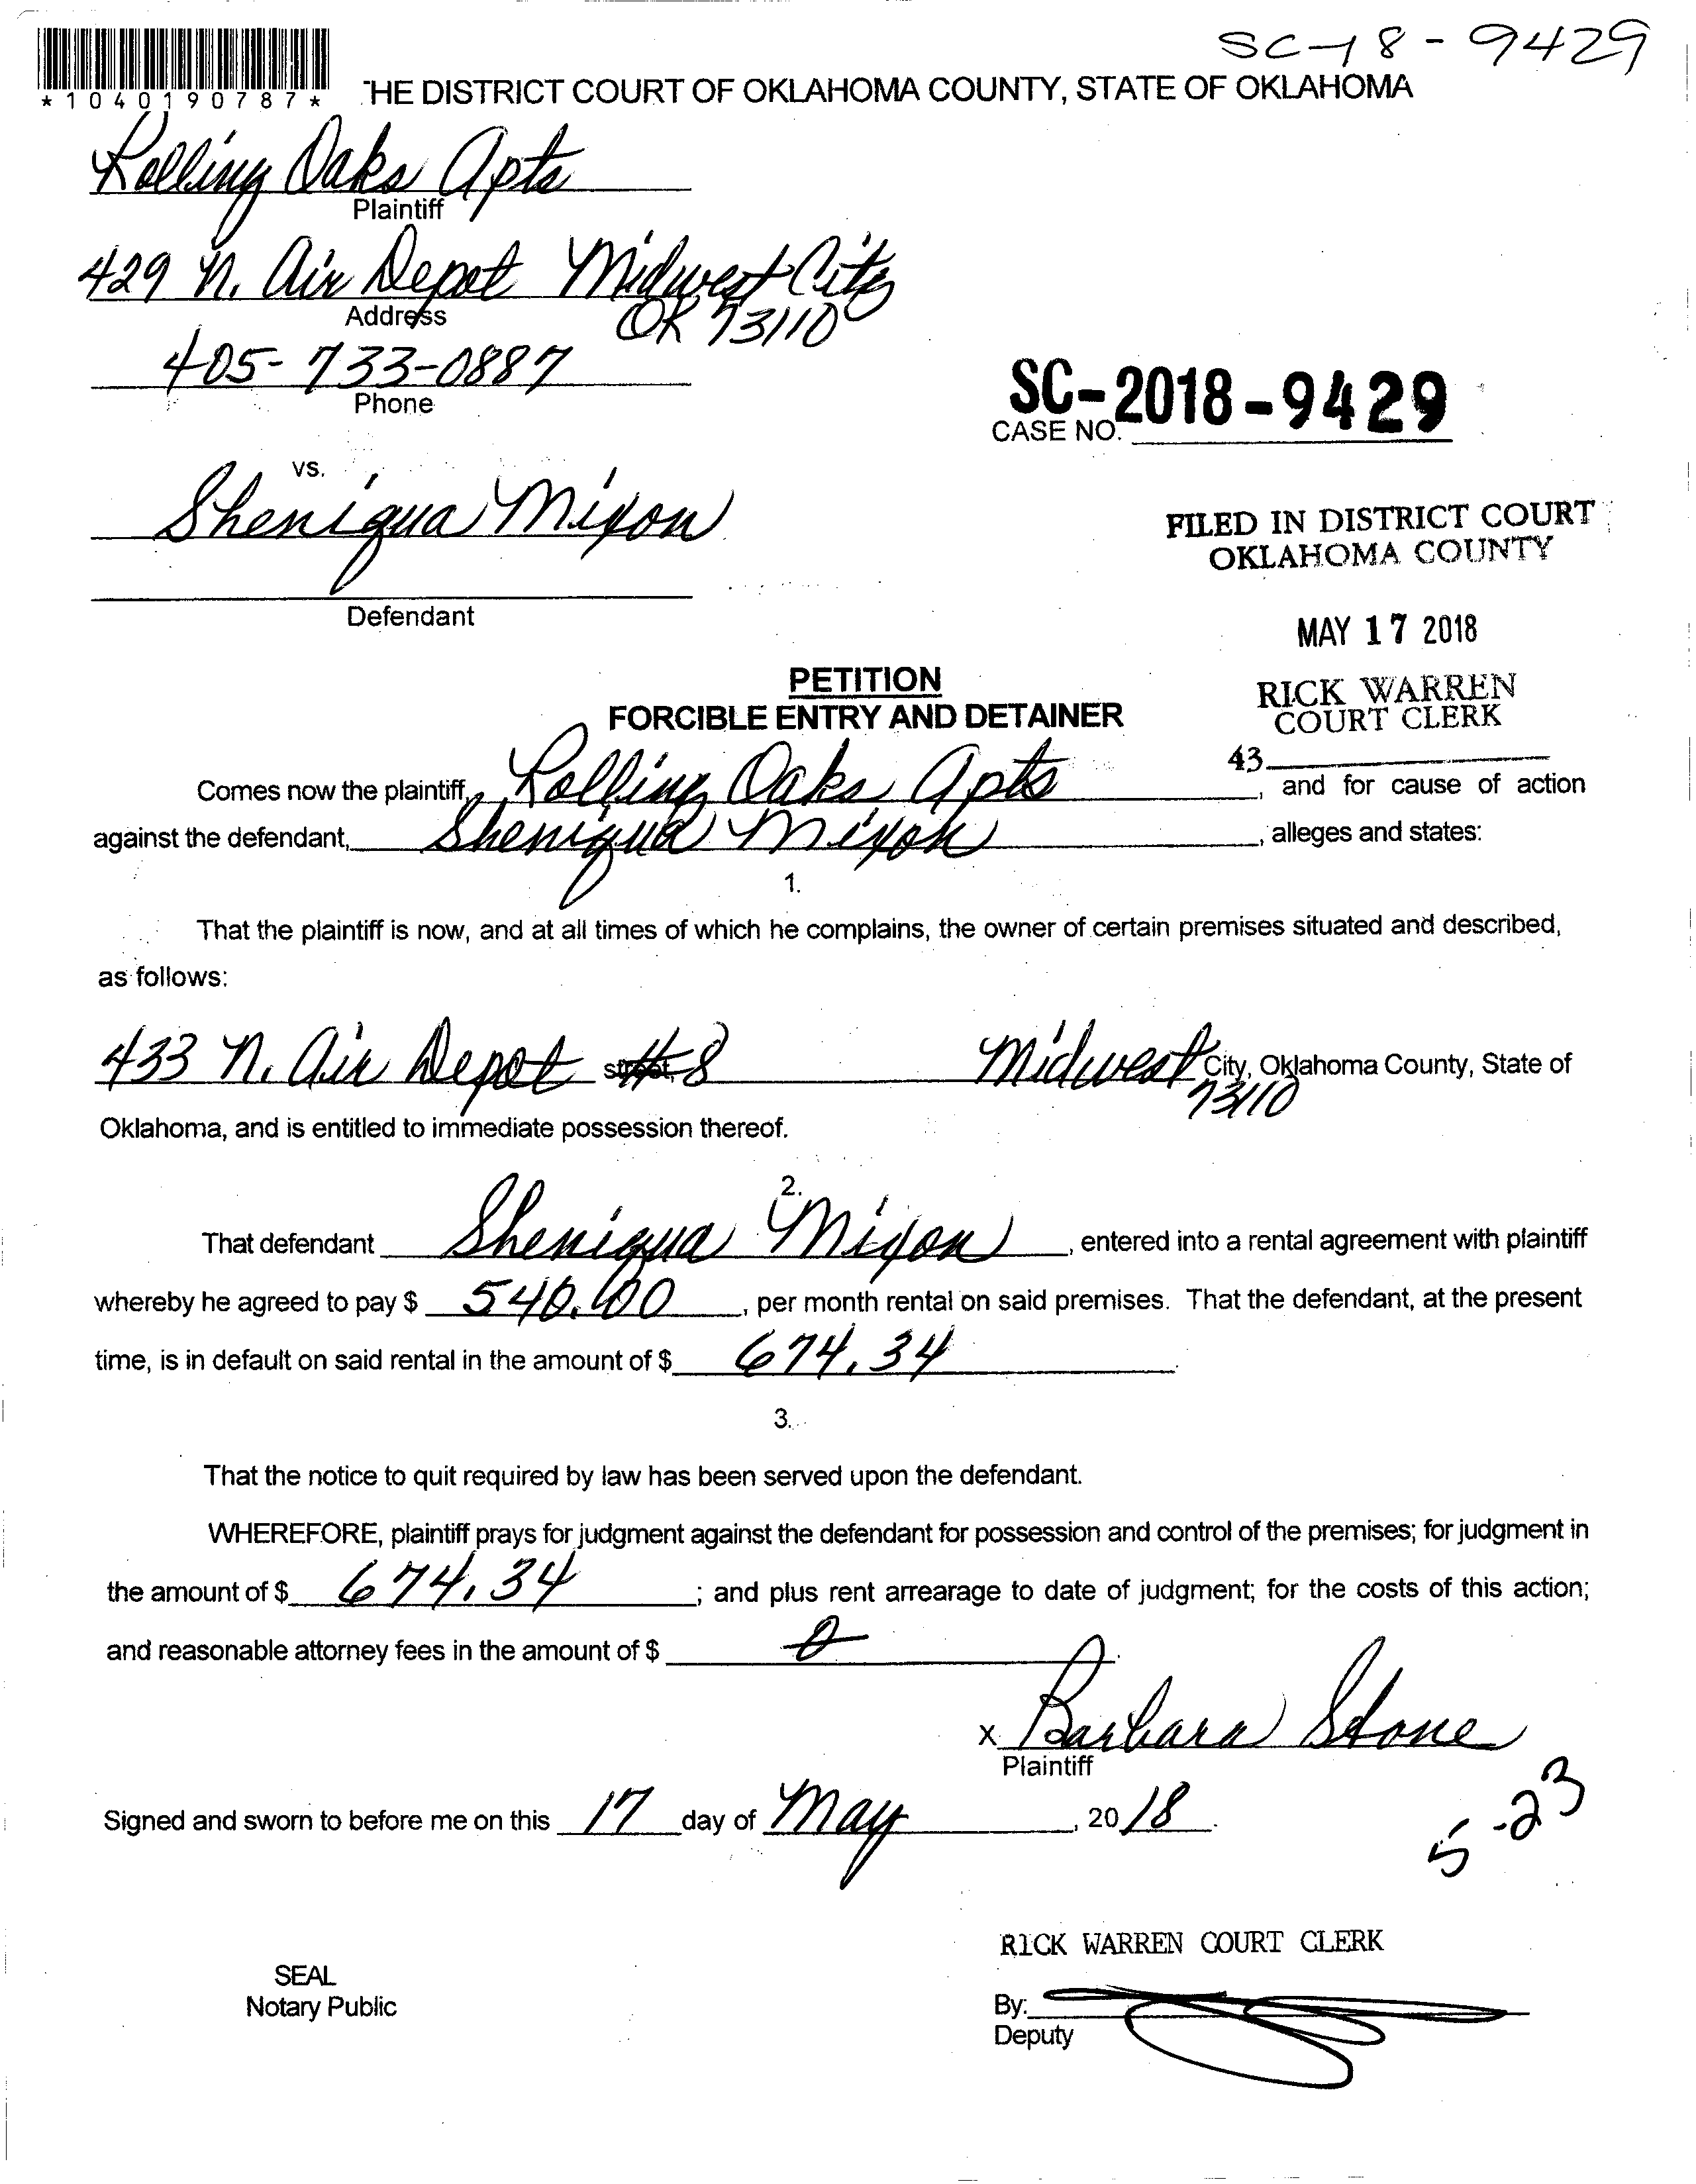 SC-18-9429
*1040190787*
THE DISTRICT COURT OF OKLAHOMA COUNTY, STATE OF OKLAHOMA
Rolling Oaks Apts
Plaintiff
429 N. Air Depot Midwest City
OK 73110
Address
405-733-0887
Phone
SC-2018-9429
CASE NO.
vs.
Sheniqua Mixon
Defendant
FILED IN DISTRICT COURT
OKLAHOMA COUNTY
MAY 17 2018
RICK WARREN
COURT CLERK
43
PETITION
FORCIBLE ENTRY AND DETAINER
Comes now the plaintiff, Rolling Oaks Apts, and for cause of action
against the defendant, Sheniqua Mixon, alleges and states:
1.
That the plaintiff is now, and at all times of which he complains, the owner of certain premises situated and described,
as follows:
433 N. Air Depot street, #8 Midwest City, Oklahoma County, State of
73110
Oklahoma, and is entitled to immediate possession thereof.
2.
That defendant Sheniqua Mixon, entered into a rental agreement with plaintiff
whereby he agreed to pay $ 540.00, per month rental on said premises. That the defendant, at the present
time, is in default on said rental in the amount of $ 674.34.
3.
That the notice to quit required by law has been served upon the defendant.
WHEREFORE, plaintiff prays for judgment against the defendant for possession and control of the premises; for judgment in
the amount of $ 674.34; and plus rent arrearage to date of judgment; for the costs of this action;
and reasonable attorney fees in the amount of $ 0.
x Barbara Stone
Plaintiff
Signed and sworn to before me on this 17 day of May, 2018.
5-23
RICK WARREN COURT CLERK
SEAL
Notary Public
By:
Deputy